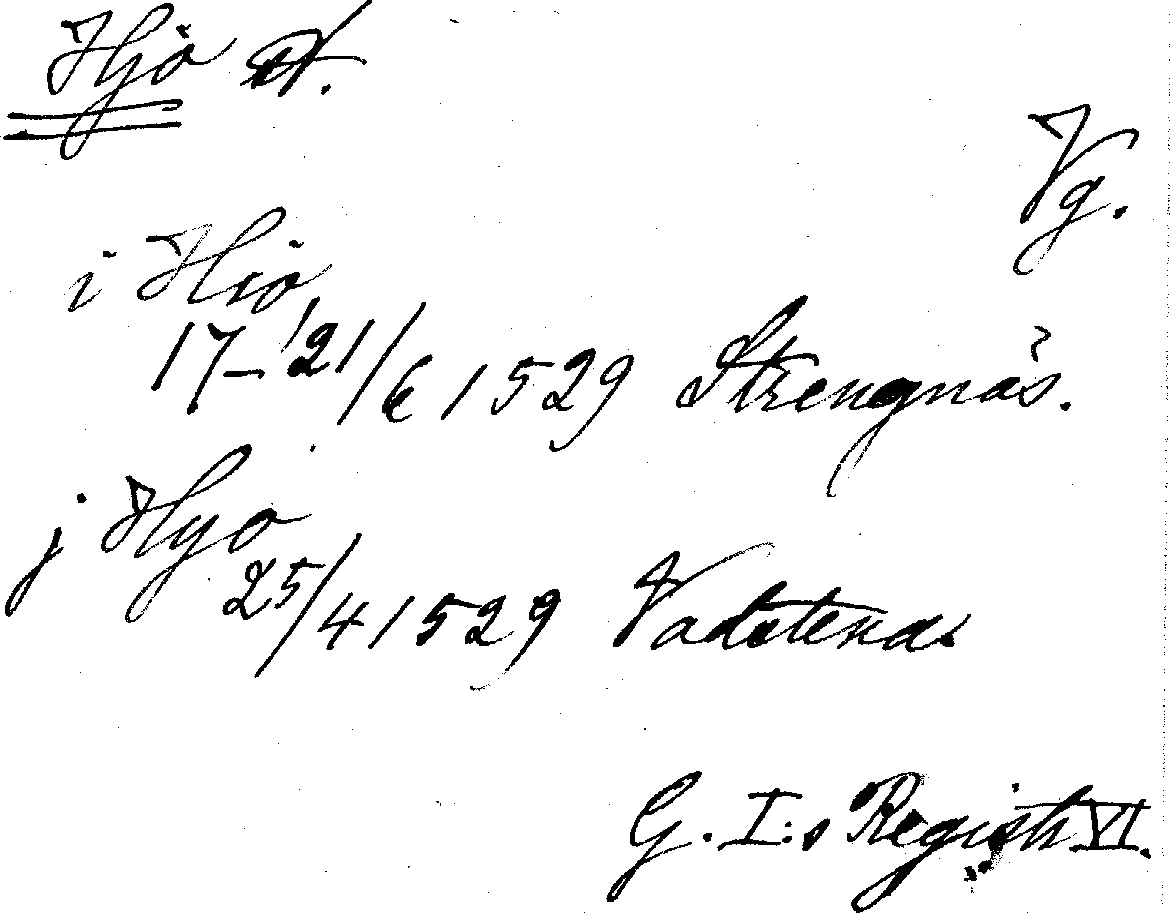 Hjo St.
Vg.
i Hio
17-21/6 1529 Strengnäs.
j Hyo
25/4 1529 Vadstena
G. I:s Registr VI.